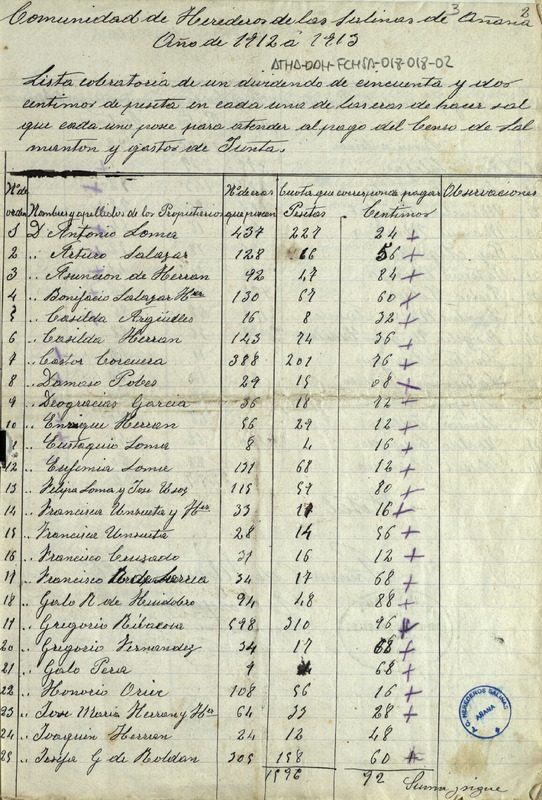 Comunidad de Herederos de las Salinas de Añana
3
2
Año de 1912 á 1913
ATHA-DAH-FCHSA-018-018-02
Lista cobratoria de un dividendo de cincuenta y dos
centimos de peseta en cada una de las eras de hacer sal
que cada uno posee para atender al pago del Censo de Sal
manton y gastos de Junta.
Nº de orden Nombres y apellidos de los Propietarios Nº de eras que poseen Cuota que corresponde pagar Pesetas Centimos Observaciones
1 D Antonio Loma 437 227 24 +
2 " Arturo Salazar 128 66 56 +
3 " Asuncion de Herran 92 47 84 +
4 " Bonifacio Salazar Hos 130 67 60 +
5 " Casilda Argüelles 16 8 32 +
6 " Casilda Herran 143 74 36 +
7 " Castor Corcuera 388 201 76 +
8 " Damaso Pobes 29 15 08 +
9 " Deogracias Garcia 36 18 72 +
10 " Enrique Herran 56 29 12 +
11 " Eustaquio Loma 8 4 16 +
12 " Eufemia Loma 131 68 12 +
13 " Felipa Loma y Jose Usoz 115 59 80 +
14 " Francisca Unzueta y Hos 33 17 16 +
15 " Francisca Unzueta 28 14 56 +
16 " Francisco Cruzado 31 16 12 +
17 " Francisco 34 17 68 +
18 " Galo R. de Huidobro 94 48 88 +
19 " Gregorio Ribacova 598 310 96 +
20 " Gregorio Fernandez 34 17 68 +
21 " Galo Perea 9 4 68 +
22 " Honorio Orive 108 56 16 +
23 " Jose Maria Herran y Hos 64 33 28 +
24 " Joaquin Herran 24 12 48
25 " Josefa G de Roldan 305 158 60 +
1596 92
Suma y sigue
A. C. HEREDEROS SALINAS
AÑANA